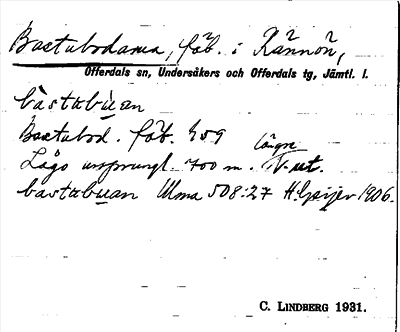 Bastubodarna, fäb. i Rännön,
Offerdals sn, Undersåkers och Offerdals tg, Jämtl. l.
bàstubùan
Bastubod. fäb. 459
längre
Lågo ursprungl. 700 m. V. ut.
bastubuan Ulma 508:27 H. Geijer 1906.
C. LINDBERG 1931.